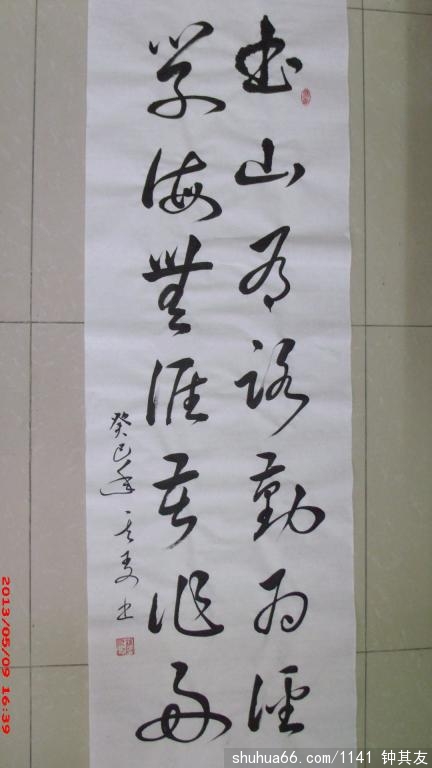 書山有路勤為徑
學海無涯苦作舟
癸巳年其友书
2013/05/09 16:39
shuhua66.com/1141 钟其友